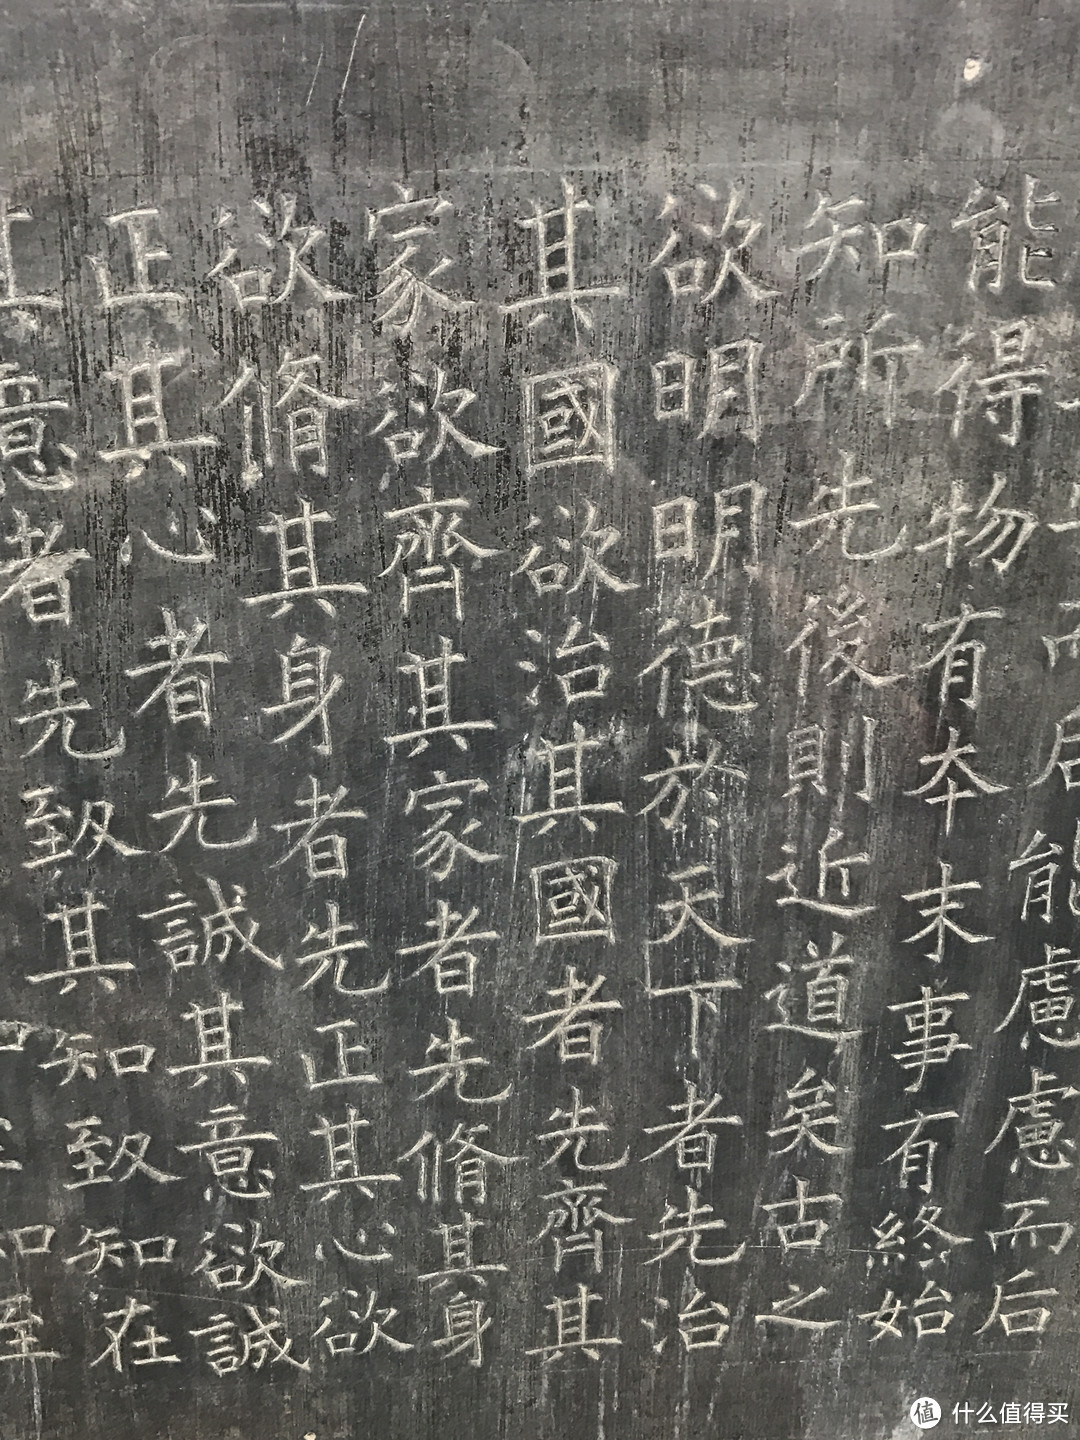 而后能慮慮而后
能得物有本末事有終始
知所先後則近道矣古之
欲明明德於天下者先治
其國欲治其國者先齊其
家欲齊其家者先脩其身
欲脩其身者先正其心欲
正其心者先誠其意欲誠
其意者先致其知致知在
知至
值 什么值得买